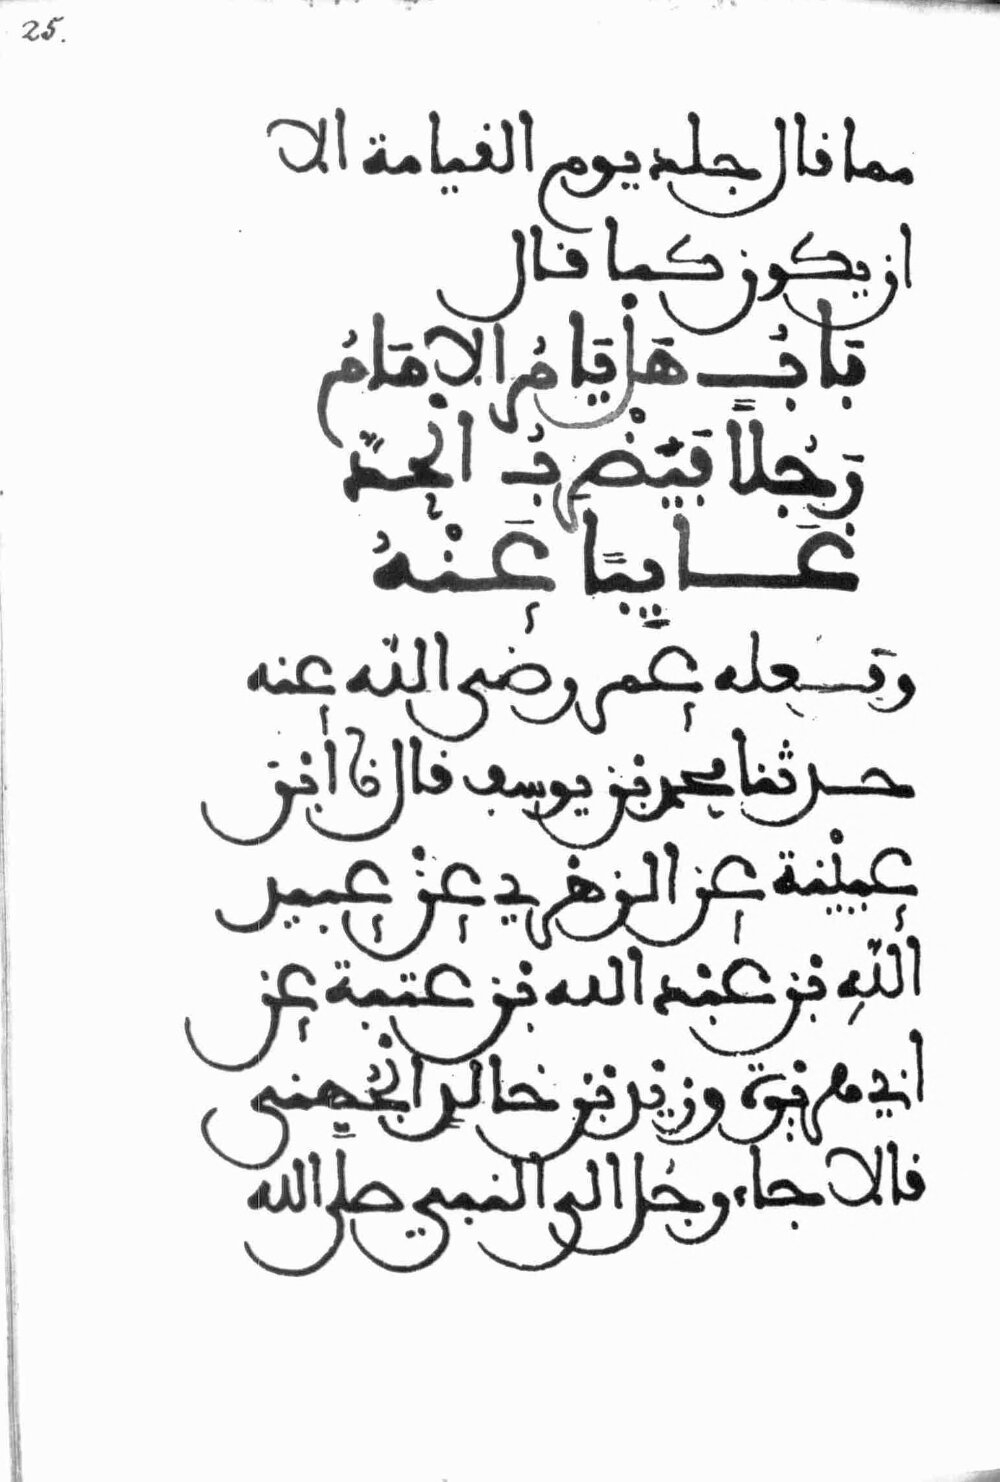 25.
مما قال جلد يوم القيامة الا
ان يكون كما قال
بَابُ هَلْ يَامُرُ الاِمَامُ
رَجُلاً فَيَضْرِبُ الْحَدَّ
غَايِبًا عَنْهُ
وقد فعله عمر رضى الله عنه
حدثنا محمد بن يوسف قال نا ابن
عيينة عن الزهري عن عبيد
الله بن عبد الله بن عتبة عن
ابي هريرة وزيد بن خالد الجُهني
قالا جاء رجُل الى النبي صلى الله